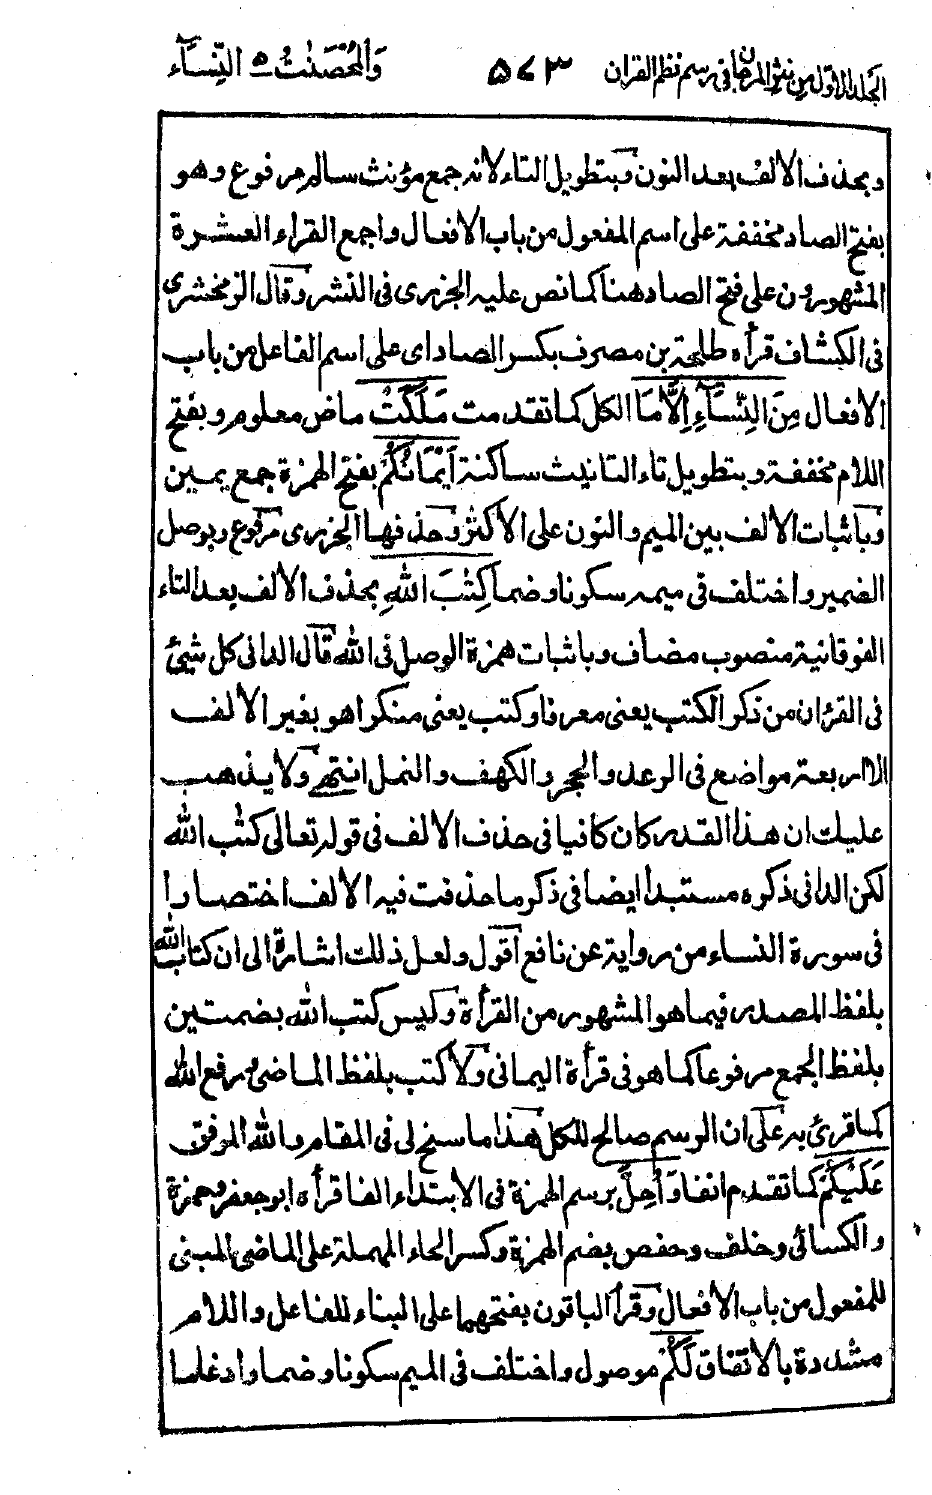 الجلد الاول من نثر المرجان في رسم نظم القران ٥٧٣ والمحصنٰت ٥ النسآء
وبحذف الالف بعد النون وبتطويل التاء لانه جمع مؤنث سالم مرفوع وهو
بفتح الصاد مخففة على اسم المفعول من باب الافعال واجمع القراء العشرة
المشهورون على فتح الصاد هنا كما نص عليه الجزري في النشر وقال الزمخشري
في الكشاف قرأه طلحة بن مصرف بكسر الصاد اي على اسم الفاعل من باب
الافعال مِنَ النِّسَآءِ اِلَّا مَا الكل كما تقدمت مَلَكَتْ ماض معلوم وبفتح
اللام مخففة وبتطويل تاء التانيث ساكنة اَيْمَانُكُمْ بفتح الهمزة جمع يمين
وباثبات الالف بين الميم والنون على الاكثر وحذفها الجزري مرفوع وبوصل
الضمير واختلف في ميمه سكونا وضما كِتٰبَ اللّٰهِ بحذف الالف بعد التاء
الفوقانية منصوب مضاف وباثبات همزة الوصل في اللّٰه قال الداني كل شيئ
في القرٰان من ذكر الكتب يعني معرفا وكتب يعني منكرا هو بغير الالف
الا اربعة مواضع في الرعد والحجر والكهف والنمل انتهى ولا يذهب
عليك ان هذا القدر كان كافيا في حذف الالف في قوله تعالى كتٰب اللّٰه
لكن الداني ذكره مستبدا ايضا في ذكر ما حذفت فيه الالف اختصارا
في سورة النساء من رواية عن نافع اقول ولعل ذلك اشارة الى ان كتاب اللّٰه
بلفظ المصدر فيما هو المشهور من القرأة وليس كتب اللّٰه بضمتين
بلفظ الجمع مرفوعا كما هو في قرأة اليماني ولا كتب بلفظ الماضي ورفع اللّٰه
كما قرئ به على ان الرسم صالح للكل هذا ما سنح لي في المقام واللّٰه الموفق
عَلَيْكُمْ كما تقدم انفا وَاُحِلَّ برسم الهمزة في الابتداء الفا قرأه ابو جعفر وحمزة
والكسائي وخلف وحفص بضم الهمزة وكسر الحاء المهملة على الماضي المبني
للمفعول من باب الافعال وقرأ الباقون بفتحهما على البناء للفاعل واللام
مشددة بالاتفاق لَكُمْ موصول واختلف في الميم سكونا وضما وادغاما